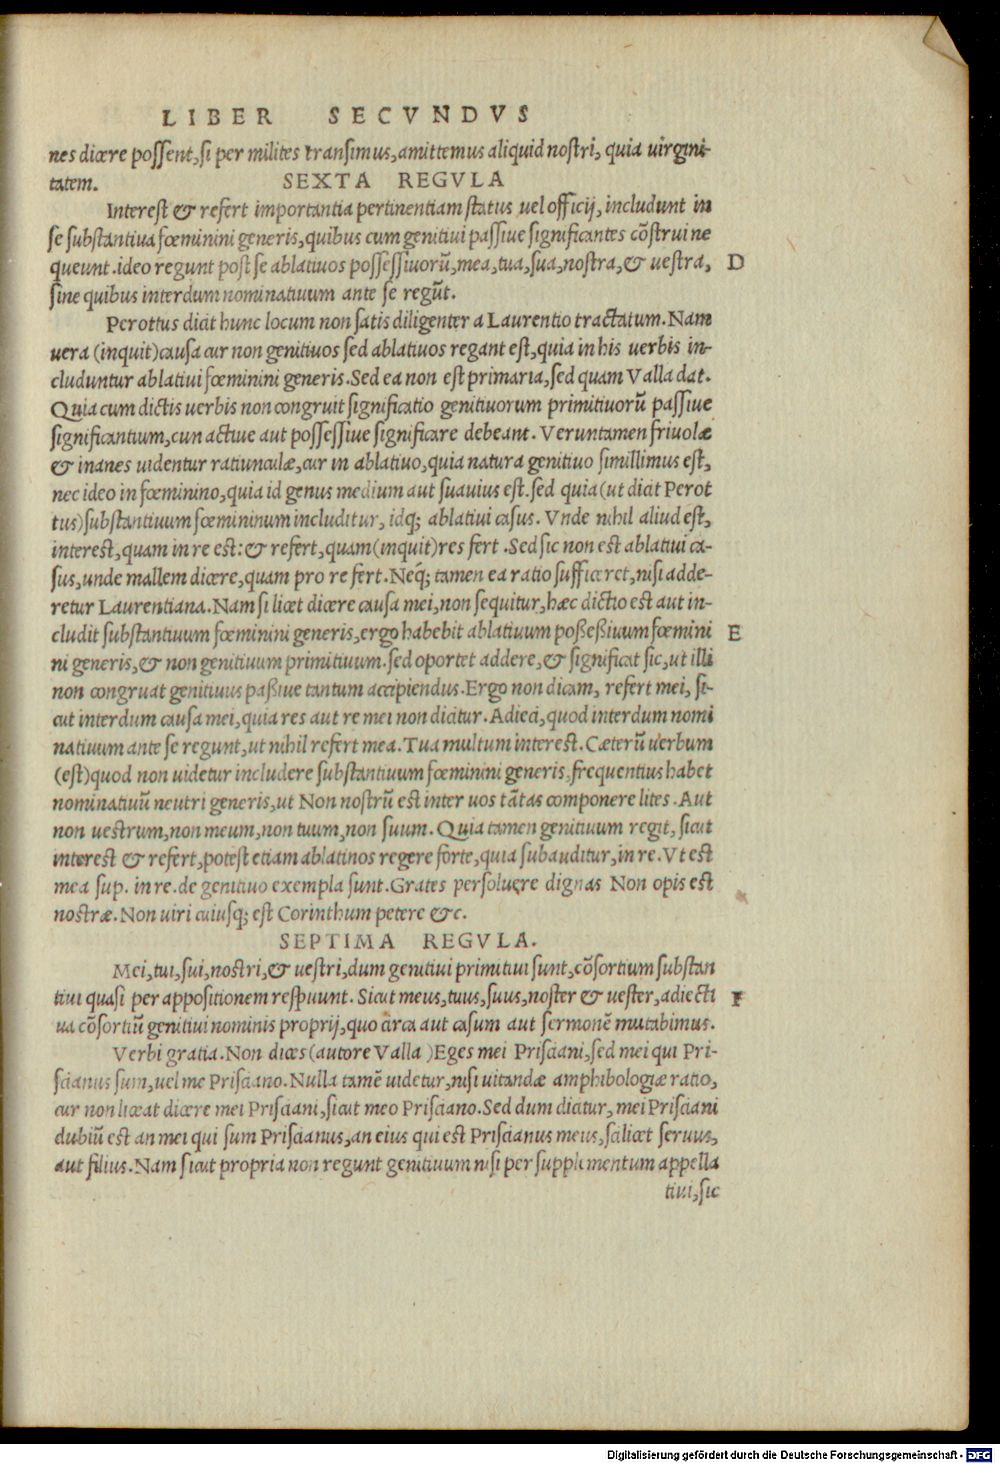 LIBER SECVNDVS
nes dicere possent, si per milites transimus, amittemus aliquid nostri, quia uirgini
tatem. SEXTA REGVLA
Interest & refert importantia pertinentiam status uel officij, includunt in
se substantiua fœminini generis, quibus cum genitiui passiue significantes cõstrui ne
queunt. ideo regunt post se ablatiuos possessiuorũ, mea, tua, sua, nostra, & uestra, D
sine quibus interdum nominatiuum ante se regũt.
Perottus dicit hunc locum non satis diligenter a Laurentio tractatum. Nam
uera (inquit) causa cur non genitiuos sed ablatiuos regant est, quia in his uerbis in-
cluduntur ablatiui fœminini generis. Sed ea non est primaria, sed quam Valla dat.
Quia cum dictis uerbis non congruit significatio genitiuorum primitiuorũ passiue
significantium, cun actiue aut possessiue significare debeant. Veruntamen friuolæ
& inanes uidentur ratiunculæ, cur in ablatiuo, quia natura genitiuo simillimus est,
nec ideo in fœminino, quia id genus medium aut suauius est. sed quia (ut dicit Perot
tus) substantiuum fœmininum includitur, idq; ablatiui casus. Vnde nihil aliud est,
interest, quam in re est: & refert, quam (inquit) res fert. Sed sic non est ablatiui ca-
sus, unde mallem dicere, quam pro re fert. Neq́; tamen ea ratio sufficeret, nisi adde-
retur Laurentiana. Nam si licet dicere causa mei, non sequitur, hæc dictio est aut in-
cludit substantiuum fœminini generis, ergo habebit ablatiuum poßeßiuum fœmini E
ni generis, & non genitiuum primitiuum. sed oportet addere, & significat sic, ut illi
non congruat genitiuus paßiue tantum accipiendus. Ergo non dicam, refert mei, si-
cut interdum causa mei, quia res aut re mei non dicitur. Adieci, quod interdum nomi
natiuum ante se regunt, ut nihil refert mea. Tua multum interest. Cæterũ uerbum
(est) quod non uidetur includere substantiuum fœminini generis, frequentius habet
nominatiuũ neutri generis, ut Non nostrũ est inter uos tãtas componere lites. Aut
non uestrum, non meum, non tuum, non suum. Quia tamen genitiuum regit, sicut
interest & refert, potest etiam ablatinos regere forte, quia subauditur, in re. Vt est
mea sup. in re. de genitiuo exempla sunt. Grates persoluere dignas Non opis est
nostræ. Non uiri cuiusq; est Corinthum petere &c.
SEPTIMA REGVLA.
Mei, tui, sui, nostri, & uestri, dum genitiui primitiui sunt, cõsortium substan
tiui quasi per appositionem respuunt. Sicut meus, tuus, suus, noster & uester, adiecti F
ua cõsortiũ genitiui nominis proprij, quo circa aut casum aut sermonẽ mutabimus.
Verbi gratia. Non dices (autore Valla) Eges mei Prisciani, sed mei qui Pri-
scianus sum, uel me Prisciano. Nulla tamẽ uidetur, nisi uitandæ amphibologiæ ratio,
cur non liceat dicere mei Prisciani, sicut meo Prisciano. Sed dum dicitur, mei Prisciani
dubiũ est an mei qui sum Priscianus, an eius qui est Priscianus meus, scilicet seruus,
aut filius. Nam sicut propria non regunt genitiuum nisi per supplementum appella
tiui, sic
Digitalisierung gefördert durch die Deutsche Forschungsgemeinschaft - DFG